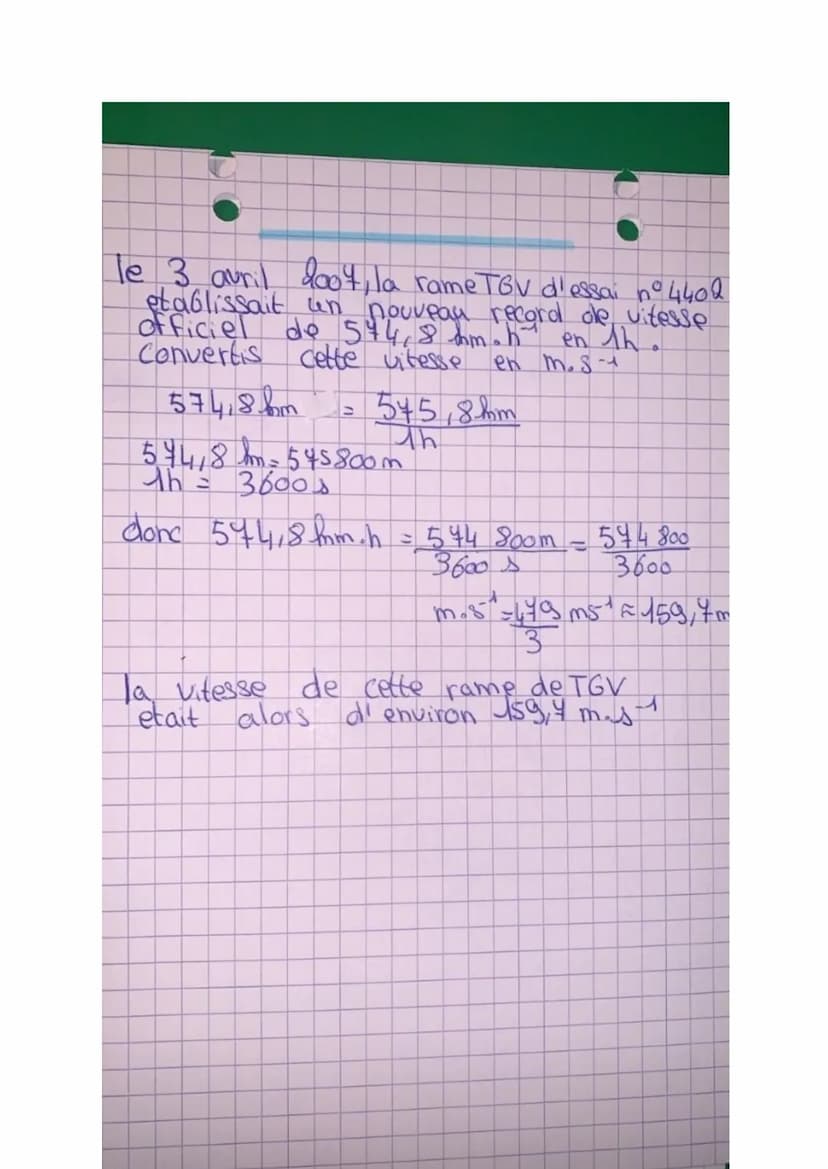 le 3 avril 2007, la rame TGV d'essai n° 4402
etablissait un nouveau record de vitesse
officiel de 574,8 km.h⁻¹ en 1h.
Convertis cette vitesse en m.s⁻¹
574,8 km = 575,8km/1h
574,8 km = 575800m
1h = 3600s
donc 574,8 km.h = 574 800m/3600 s = 574 800/3600
m.s⁻¹ = 479/3 ms⁻¹ ≈ 159,7m
la vitesse de cette rame de TGV
etait alors d'environ 159,7 m.s⁻¹